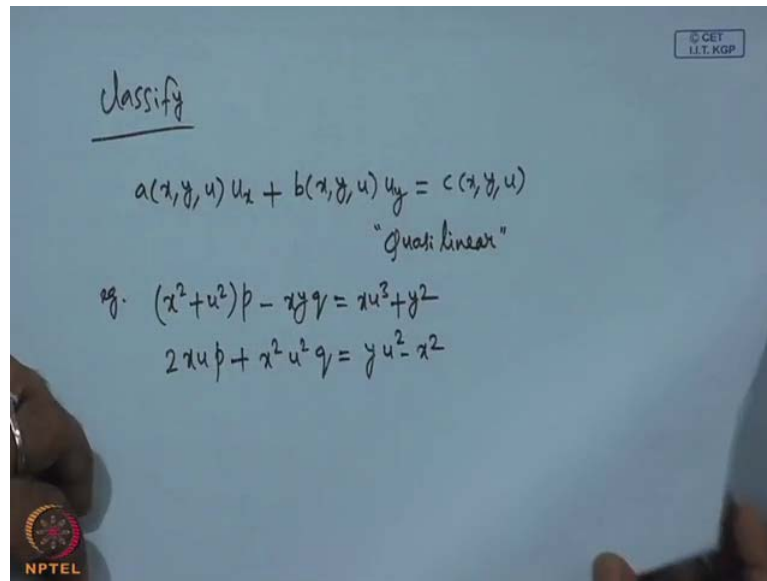 © CET
I.I.T. KGP
Classify
a(x,y,u) u_x + b(x,y,u) u_y = c(x,y,u)
"Quasi linear"
eg. (x²+u²)p - xyq = xu³+y²
2xup + x²u²q = yu²-x²
NPTEL